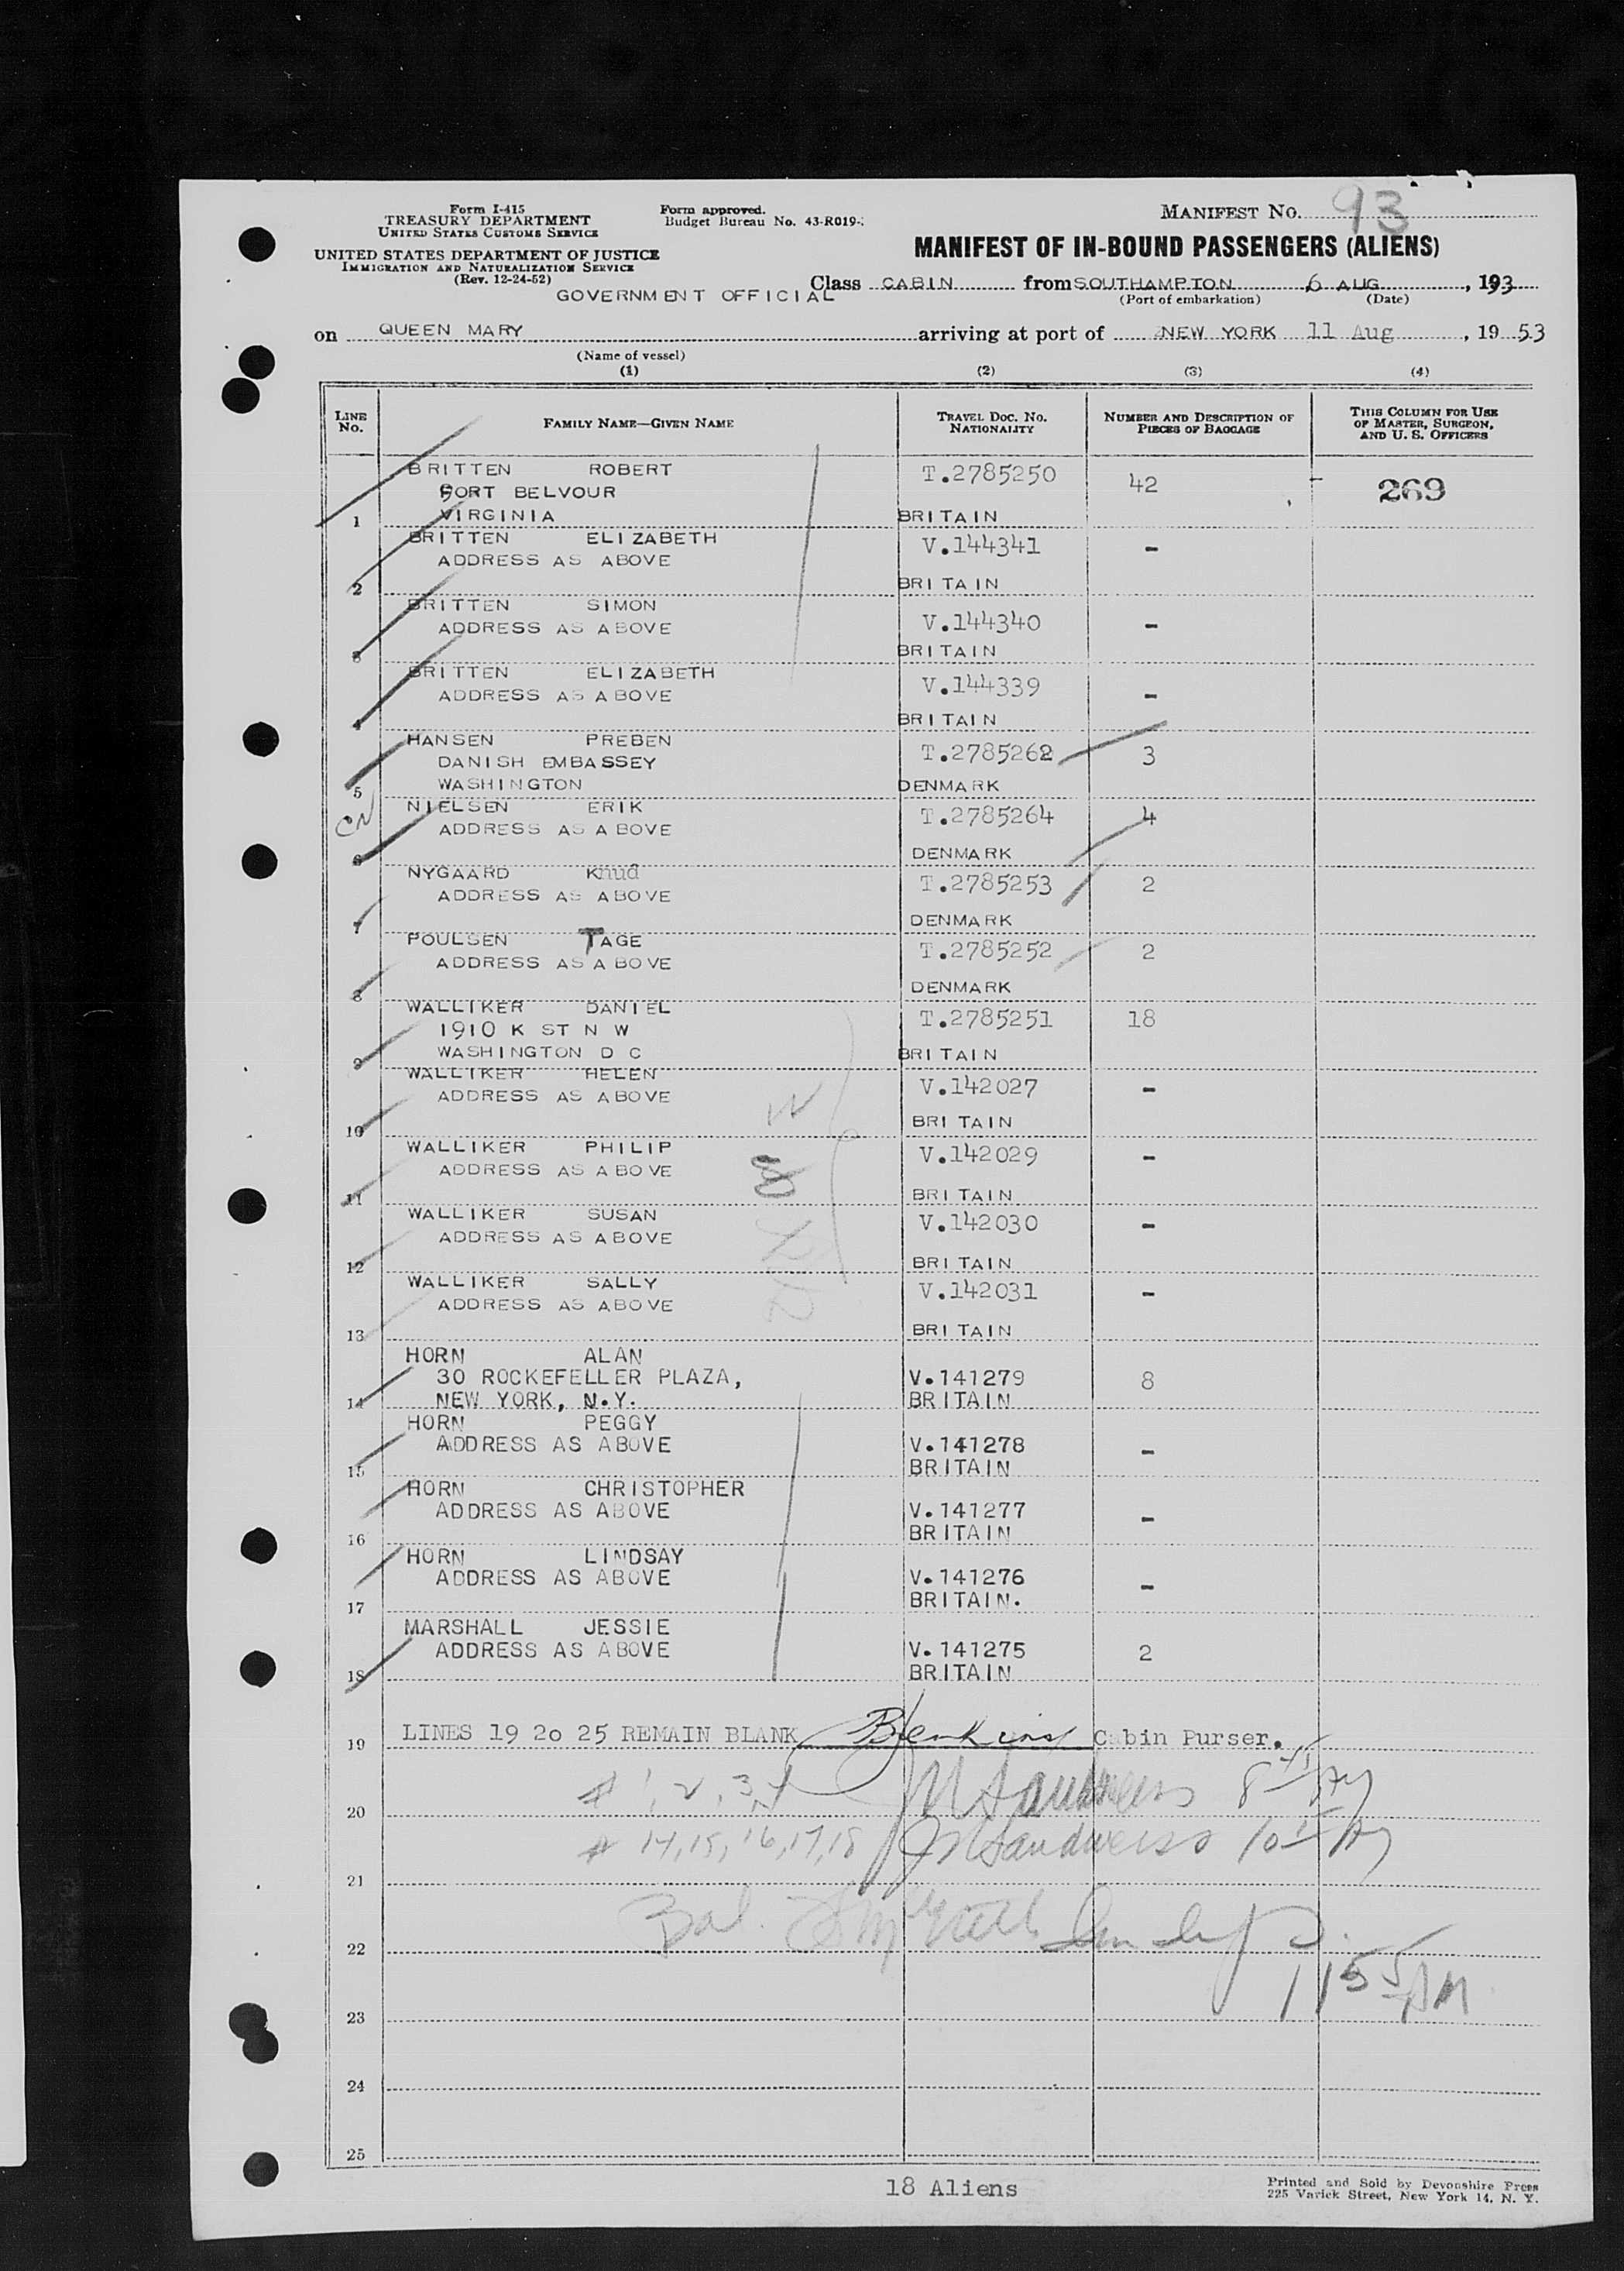 Form I-415
TREASURY DEPARTMENT
UNITED STATES CUSTOMS SERVICE
UNITED STATES DEPARTMENT OF JUSTICE
IMMIGRATION AND NATURALIZATION SERVICE
(Rev. 12-24-52)
Form approved.
Budget Bureau No. 43-R019-
MANIFEST NO. 93
MANIFEST OF IN-BOUND PASSENGERS (ALIENS)
GOVERNMENT OFFICIAL
Class CABIN from SOUTHAMPTON 6 AUG, 193
(Port of embarkation) (Date)
on QUEEN MARY arriving at port of NEW YORK 11 Aug, 1953
(Name of vessel)
(1) (2) (3) (4)
LINE NO. FAMILY NAME—GIVEN NAME TRAVEL DOC. NO. NATIONALITY NUMBER AND DESCRIPTION OF PIECES OF BAGGAGE THIS COLUMN FOR USE OF MASTER, SURGEON, AND U. S. OFFICERS
BRITTEN ROBERT T.2785250 42 269
FORT BELVOUR
1 VIRGINIA BRITAIN
BRITTEN ELIZABETH V.144341 -
ADDRESS AS ABOVE
2 BRITAIN
BRITTEN SIMON V.144340 -
ADDRESS AS ABOVE
3 BRITAIN
BRITTEN ELIZABETH V.144339 -
ADDRESS AS ABOVE
4 BRITAIN
HANSEN PREBEN T.2785262 3
DANISH EMBASSEY
5 WASHINGTON DENMARK
CN NIELSEN ERIK T.2785264 4
ADDRESS AS ABOVE
6 DENMARK
NYGAARD Knud T.2785253 2
ADDRESS AS ABOVE
7 DENMARK
POULSEN TAGE T.2785252 2
ADDRESS AS ABOVE
8 DENMARK
WALLIKER DANIEL T.2785251 18
1910 K ST N W
9 WASHINGTON D C BRITAIN
WALLIKER HELEN V.142027 -
ADDRESS AS ABOVE
10 BRITAIN
WALLIKER PHILIP V.142029 -
ADDRESS AS ABOVE
11 BRITAIN
WALLIKER SUSAN V.142030 -
ADDRESS AS ABOVE
12 BRITAIN
WALLIKER SALLY V.142031 -
ADDRESS AS ABOVE
13 BRITAIN
HORN ALAN
30 ROCKEFELLER PLAZA, V.141279 8
14 NEW YORK, N.Y. BRITAIN
HORN PEGGY
ADDRESS AS ABOVE V.141278 -
15 BRITAIN
HORN CHRISTOPHER
ADDRESS AS ABOVE V.141277 -
16 BRITAIN
HORN LINDSAY
ADDRESS AS ABOVE V.141276 -
17 BRITAIN.
MARSHALL JESSIE
ADDRESS AS ABOVE V.141275 2
18 BRITAIN
19 LINES 19 2o 25 REMAIN BLANK Cabin Purser.
20 # 1, 2, 3, 4
21 # 14, 15, 16, 17, 18 Sandweiss
22 Bal.
1155 AM
23
24
25
18 Aliens
Printed and Sold by Devonshire Press
225 Varick Street, New York 14, N. Y.